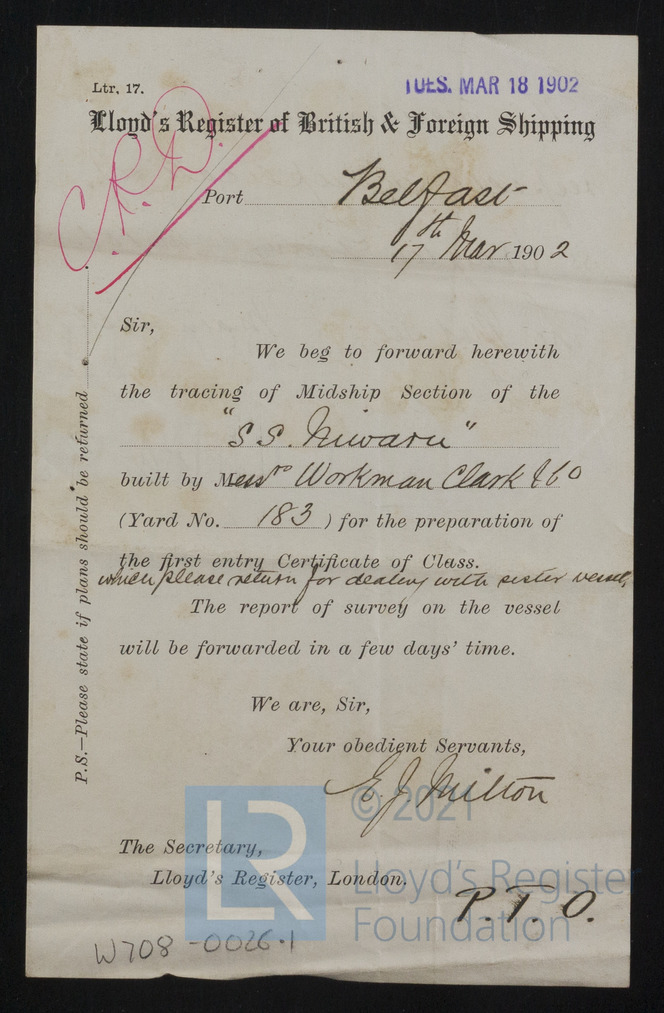 Ltr. 17.
TUES. MAR 18 1902
Lloyd's Register of British & Foreign Shipping
C.R.D.
Port Belfast
17th Mar 1902
Sir,
We beg to forward herewith
the tracing of Midship Section of the
"S.S. Niwaru"
built by Messrs Workman Clark & Co
(Yard No. 183) for the preparation of
the first entry Certificate of Class.
which please return for dealing with sister vessel,
The report of survey on the vessel
will be forwarded in a few days' time.
We are, Sir,
Your obedient Servants,
E. J. Milton
The Secretary,
Lloyd's Register, London.
P.T.O.
P.S.—Please state if plans should be returned
W708-0026.1
LR
© 2021
Lloyd's Register
Foundation